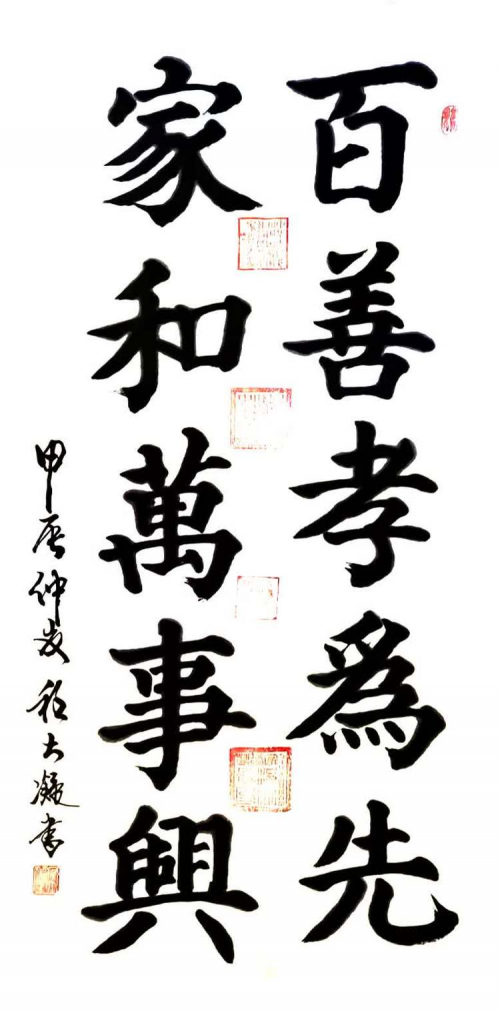 百善孝為先
家和萬事興
甲辰仲夏 程大凝書